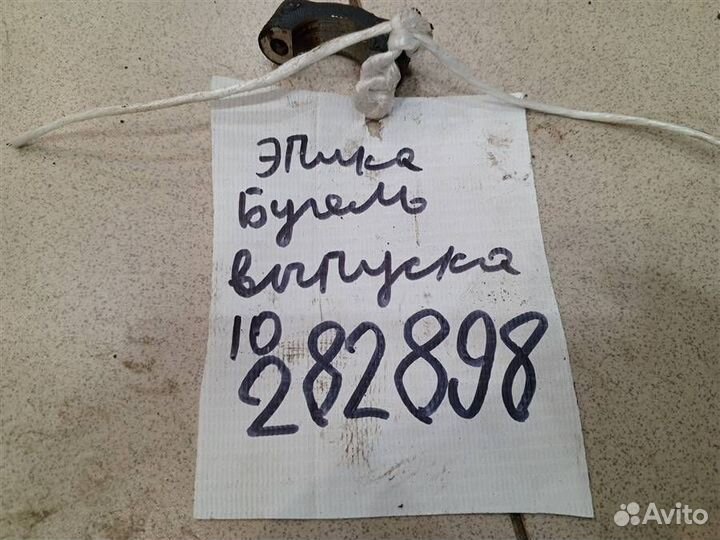 Эпика
Бугель
выпуска
10
282898
Avito